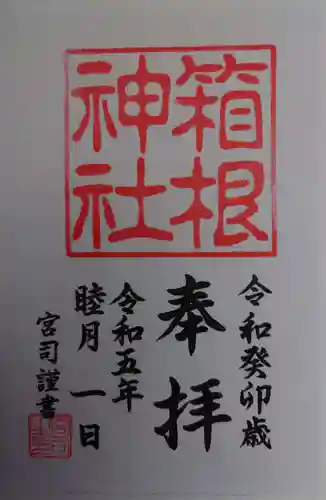 箱根
神社
令和癸卯歳
奉拝
令和五年
睦月一日
宮司謹書